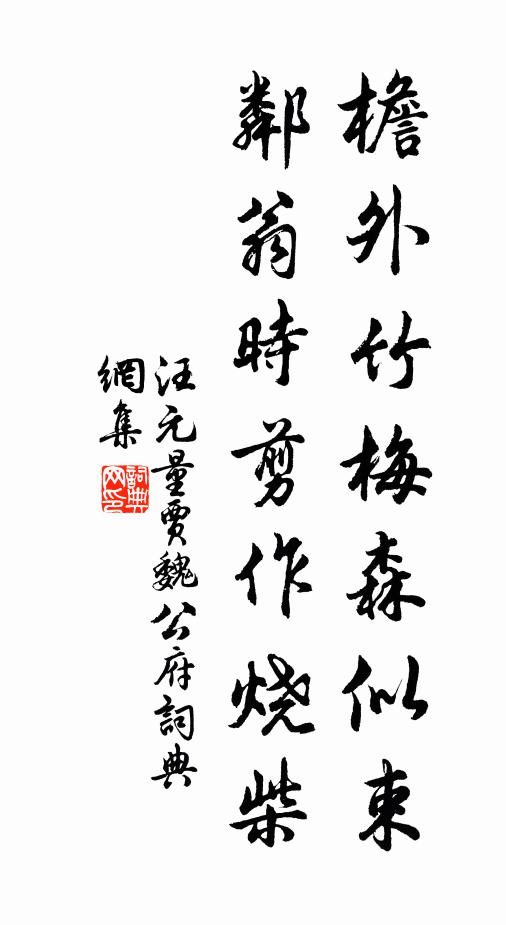 檐外竹梅森似束
鄰翁時剪作烧柴
汪元量賈魏公府詞典
網集
詞典网印